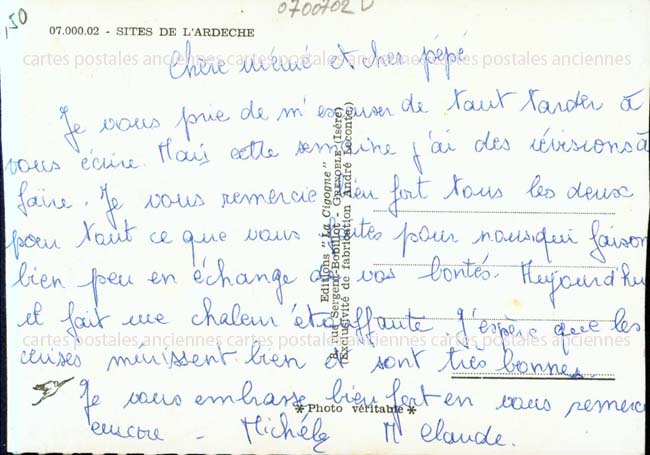 ,50
0700702 D
07.000.02 - SITES DE L'ARDECHE
cartes postales anciennes cartes postales anciennes cartes postales anciennes
Chère mémé et cher pépé
Je vous prie de m'excuser de tant tarder à
vous écrire. Mais cette semaine j'ai des révisions à
faire. Je vous remercie bien fort tous les deux
pour tout ce que vous faites pour nous qui faison
bien peu en échange de vos bontés. Aujourd'hu
il fait une chaleur étouffante. J'espère que les
cartes postales anciennes cartes postales anciennes cartes postales anciennes
cerises murissent bien et sont très bonnes.
Je vous embrasse bien fort en vous remerc
encore - Michèle M Claude.
Editions "La Cigogne"
8, rue Sergent-Bobillot - GRENOBLE (Isère)
Exclusivité de fabrication André Leconte
*Photo véritable*